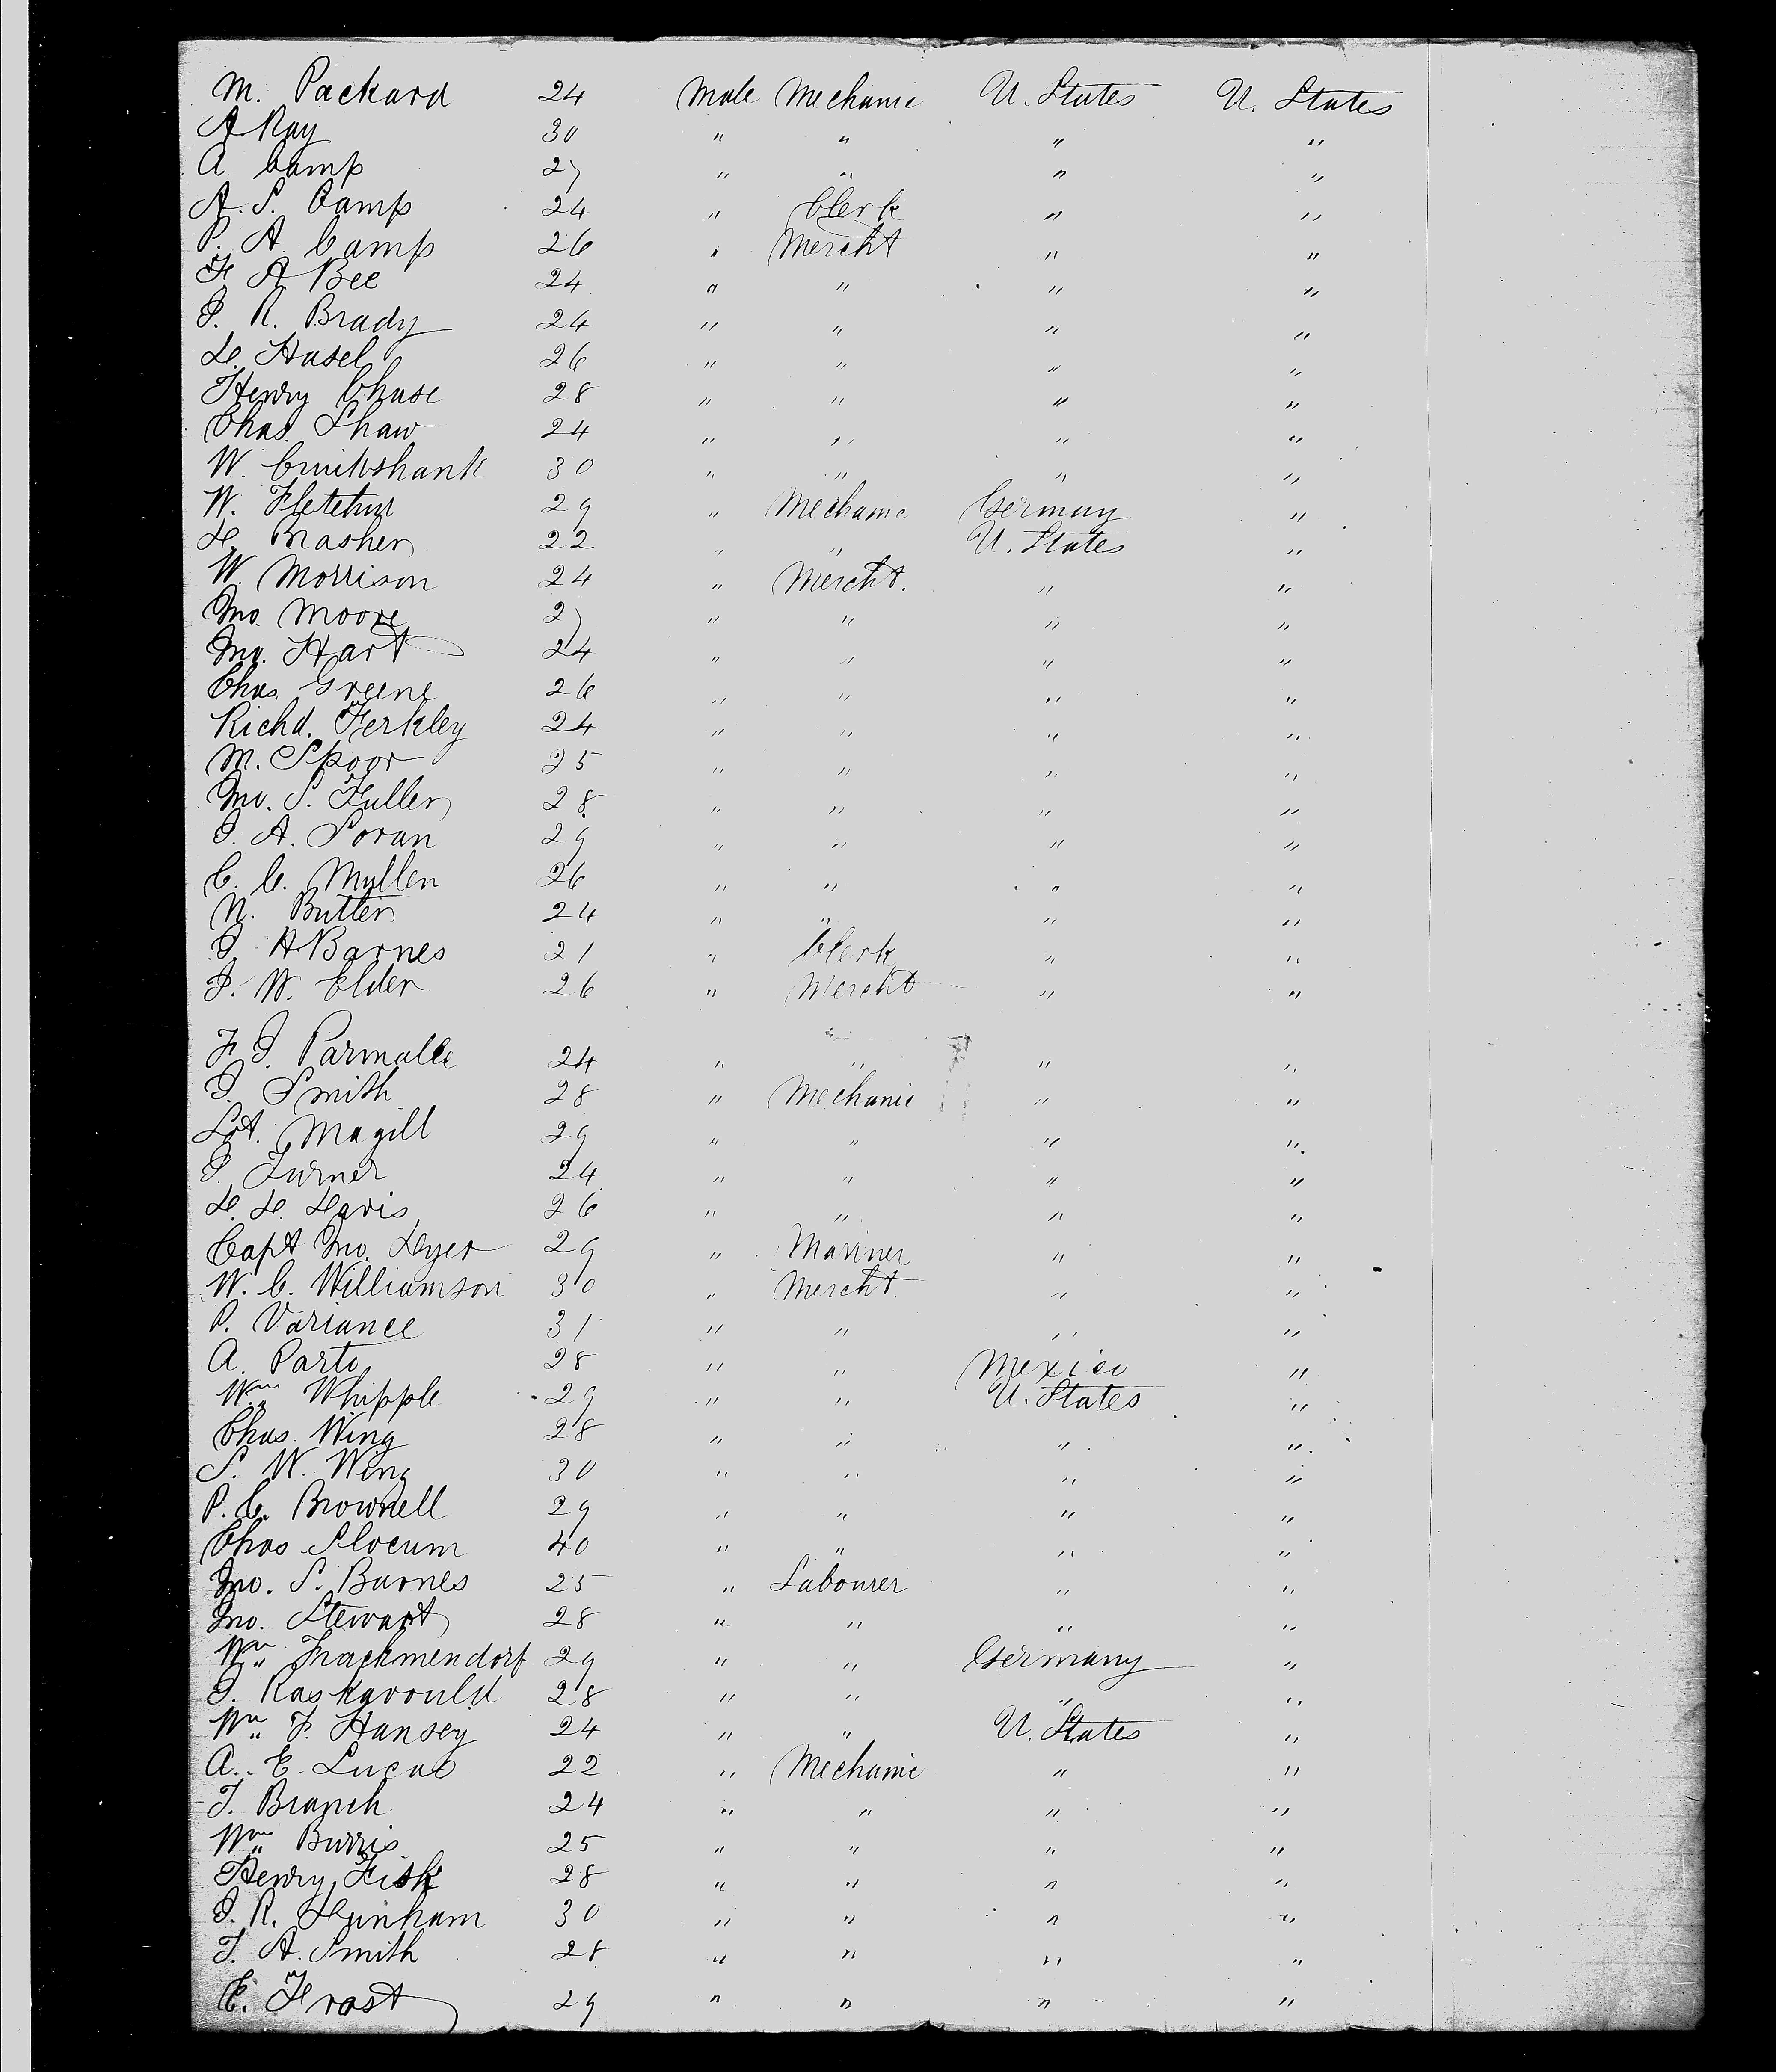 M. Packard 24 Male Mechanic U. States U. States
A Ray 30 " " " "
A Camp 27 " " " "
A. S. Camp 24 " Clerk " "
P. A Camp 26 " Mercht " "
F. A Bee 24 " " " "
J. R. Brady 24 " " " "
D. Hasel 26 " " " "
Henry Chase 28 " " " "
Chas. Shaw 24 " " " "
W. Cruikshank 30 " " " "
W. Fletcher 29 " Mechanic Germany "
D. Brasher 22 " " U. States "
W. Morrison 24 " Mercht. " "
Jno. Moore 27 " " " "
Jno. Hart 24 " " " "
Chas. Greene 26 " " " "
Richd. Ferkley 24 " " " "
M. Spoor 25 " " " "
Jno. S. Fuller 28 " " " "
J. A. Soran 29 " " " "
C. C. Mullen 26 " " " "
N. Butter 24 " " " "
J. A Barnes 21 " Clerk " "
J. W. Elder 26 " Mercht " "
F. J. Parmalee 24 " " " "
J. Smith 28 " Mechanic " "
Lot. Magill 29 " " " "
J. Turner 24 " " " "
D. D. Davis 26 " " " "
Capt Jno. Dyer 29 " Mariner " "
W. C. Williamson 30 " Mercht. " "
P. Variance 31 " " " "
A. Parto 28 " " Mexico "
Wm. Whipple 29 " " U. States "
Chas. Wing 28 " " " "
S. W. Wing 30 " " " "
P. C. Brownell 29 " " " "
Chas Slocum 40 " " " "
Jno. S. Barnes 25 " Labourer " "
Jno. Stewart 28 " " " "
Wm. Trackmendorf 29 " " Germany "
J. Raskavould 28 " " " "
Wm. F. Hansey 24 " " U. States "
A. E. Lucas 22 " Mechanic " "
T. Branch 24 " " " "
Wm. Burris 25 " " " "
Henry Fisk 28 " " " "
J. R. Dunham 30 " " " "
T. A. Smith 28 " " " "
E. Frost 29 " " " "